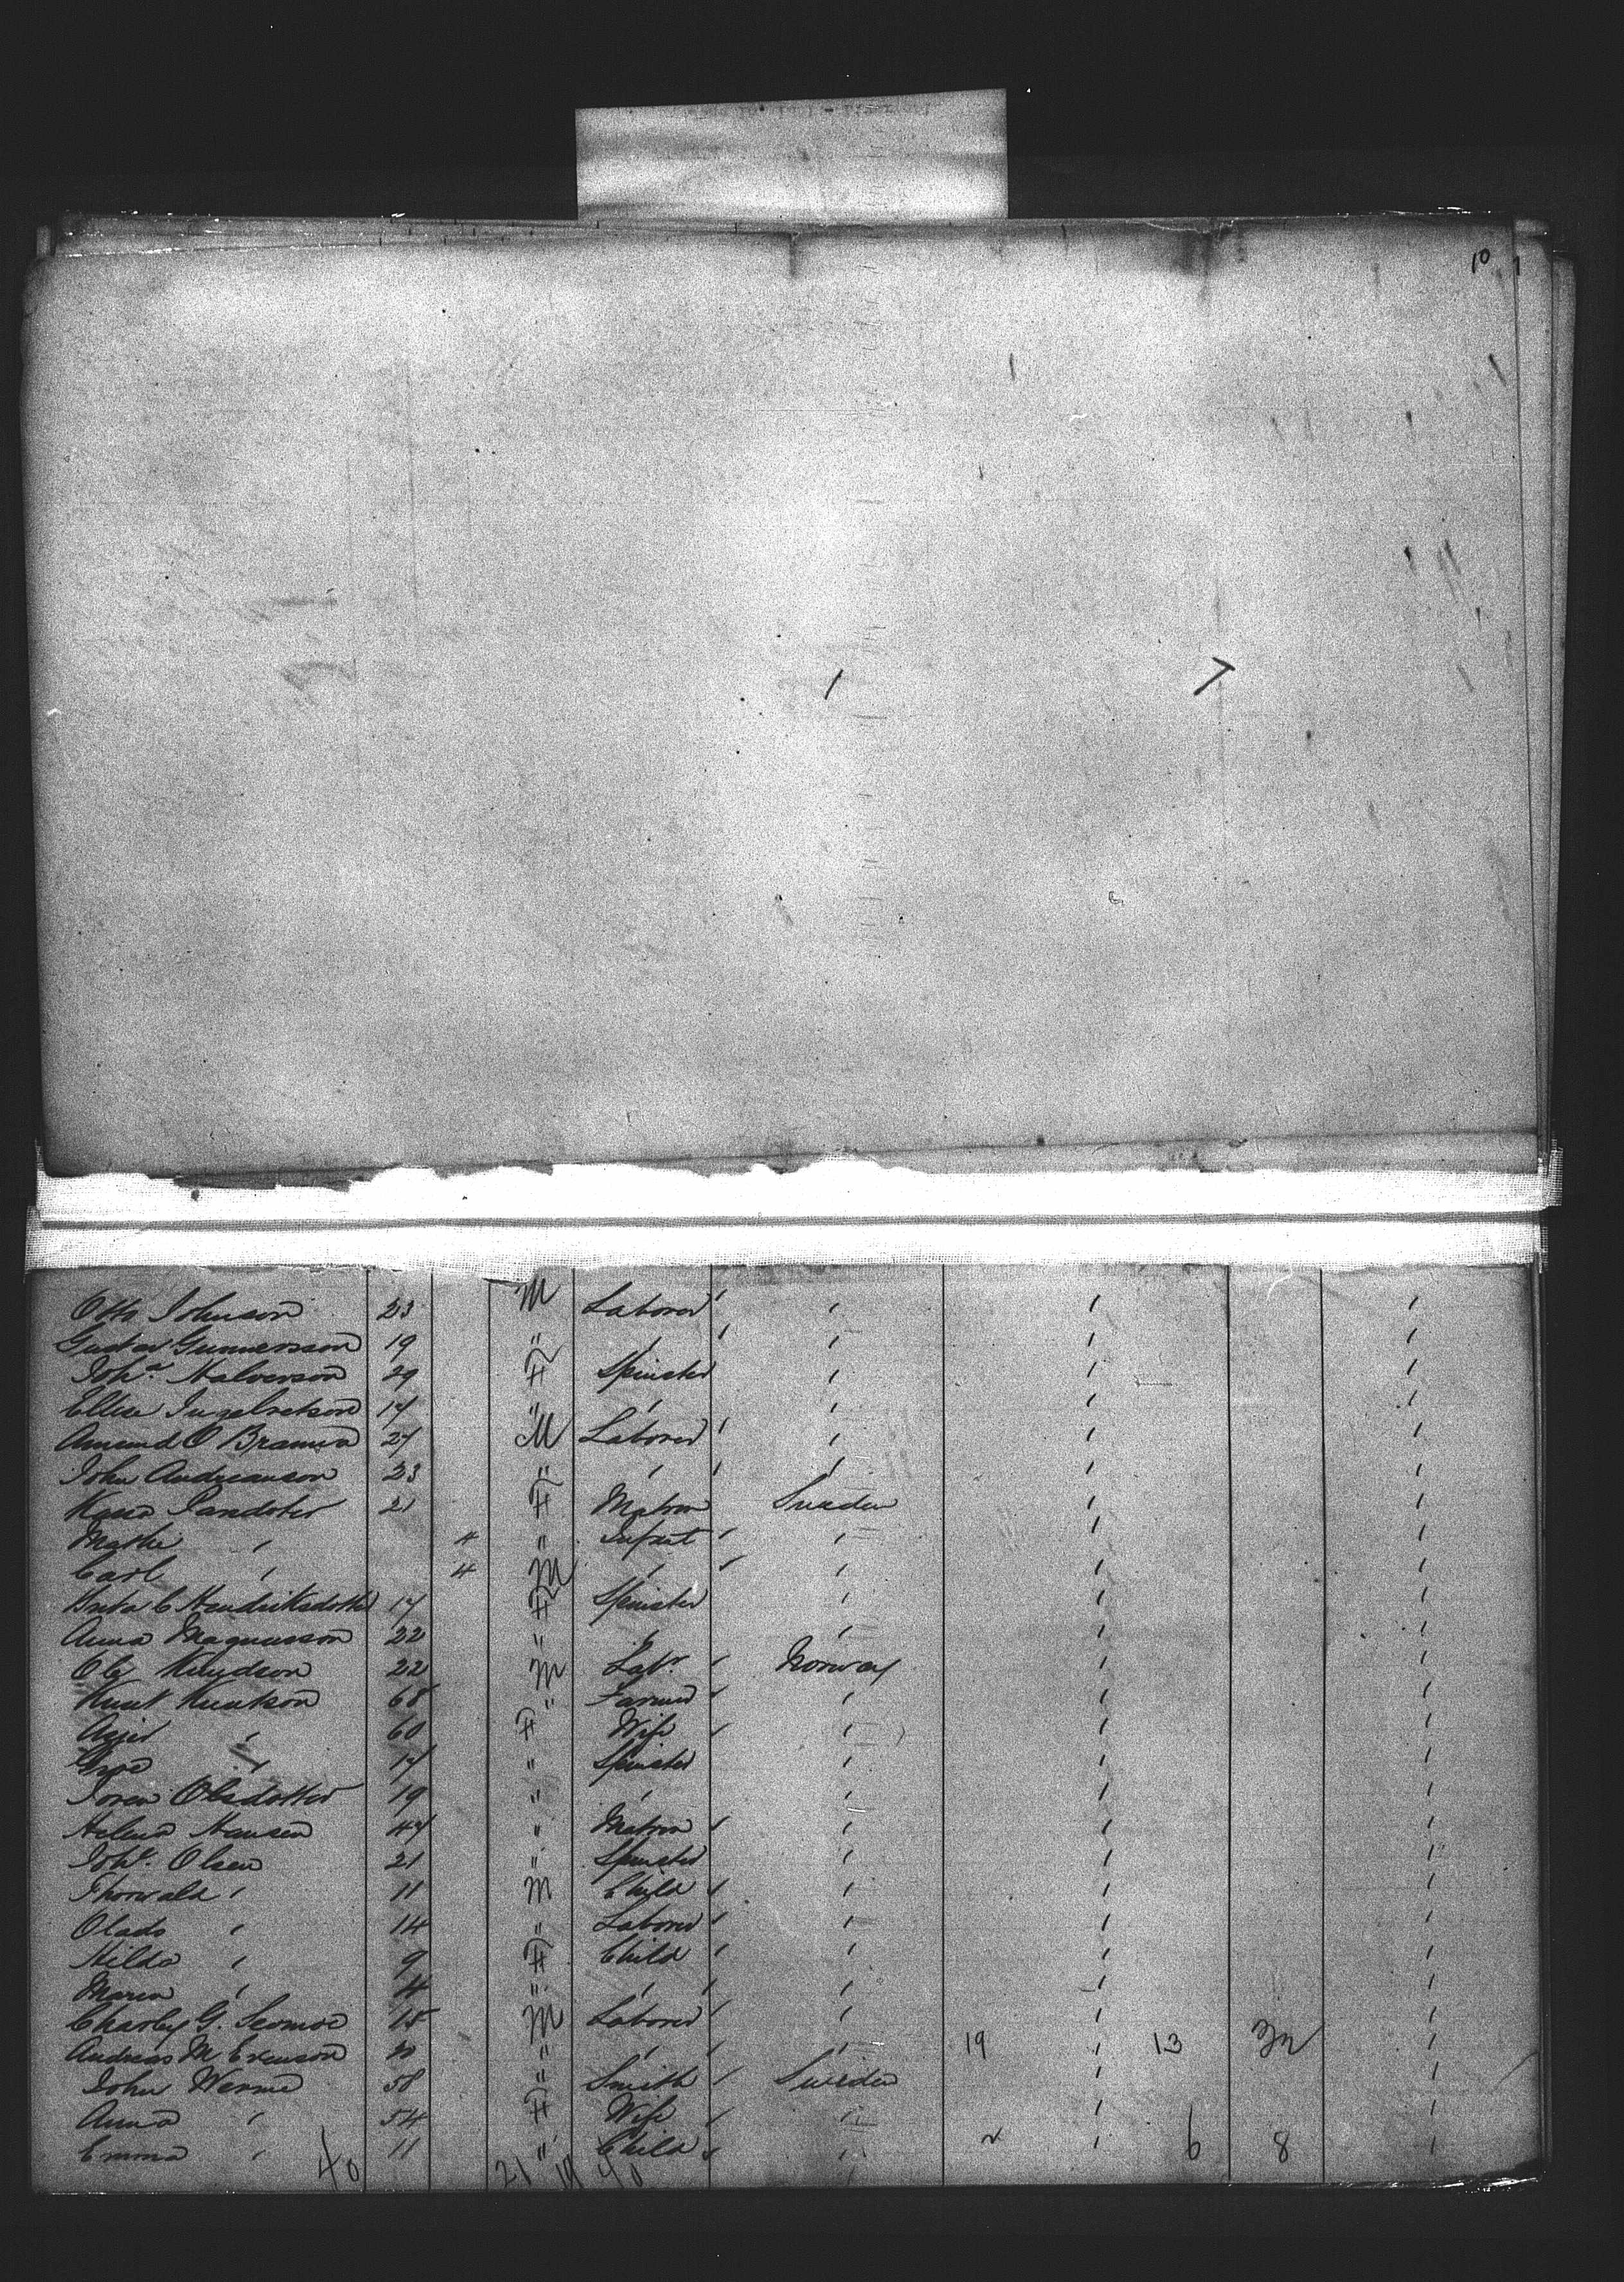 10
Otto Johnson 23 M Laborer ' ' ' '
Gustav Gunnersson 19 " ' ' ' ' '
Joh.a Halverson 29 F Spinster ' ' '
Ellise Ingebretson 17 " ' ' ' '
Amund O 27 M Laborer ' ' ' '
John Andreanson 23 " ' ' ' ' '
21 F Matron Sweden ' '
Mathe ' 4 " Infant ' ' ' '
Carl ' 4 M ' ' ' ' '
C Hendriksdotter 17 F Spinster ' ' '
Anna Magnusson 22 " ' ' ' '
Ole Knudson 22 M Lab.r ' Norway ' '
Knut Knutson 68 " Farmer ' ' ' '
' 60 F Wife ' ' ' '
' 17 " Spinster ' ' '
Olsdotter 19 " ' ' ' '
Helena Hansen 47 " Matron ' ' ' '
Joh. Olsen 21 " Spinster ' ' '
Thorvald ' 11 M Child ' ' ' '
' 14 " Laborer ' ' ' '
Hilda ' 9 F Child ' ' ' '
Maren ' 4 " ' ' ' ' '
Charley G. 18 M Laborer ' ' ' '
Andreas M Evenson " ' ' ' 19 ' 13 '
John 58 " Smith ' Sweden ' '
Anna ' 54 F Wife ' ' ' '
Emma ' 11 " Child ' ' 2 ' 6 8 '
40 21 19 40